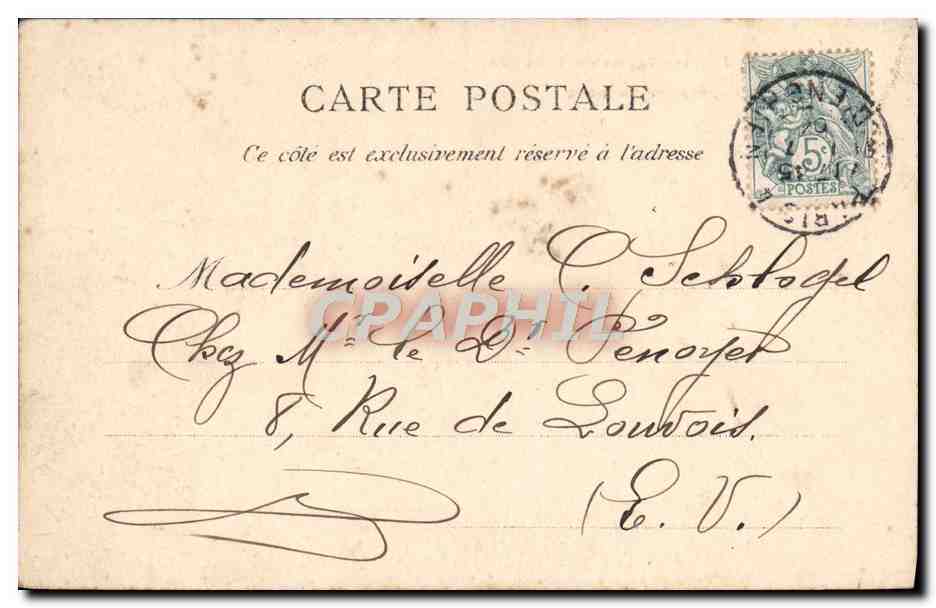 CARTE POSTALE
Ce côté est exclusivement réservé à l'adresse
5c
POSTES
Mademoiselle C. Schlogel
Chez Mr le Dr Penoyer
8, Rue de Louvois.
(E. V.)
CPAPHIL